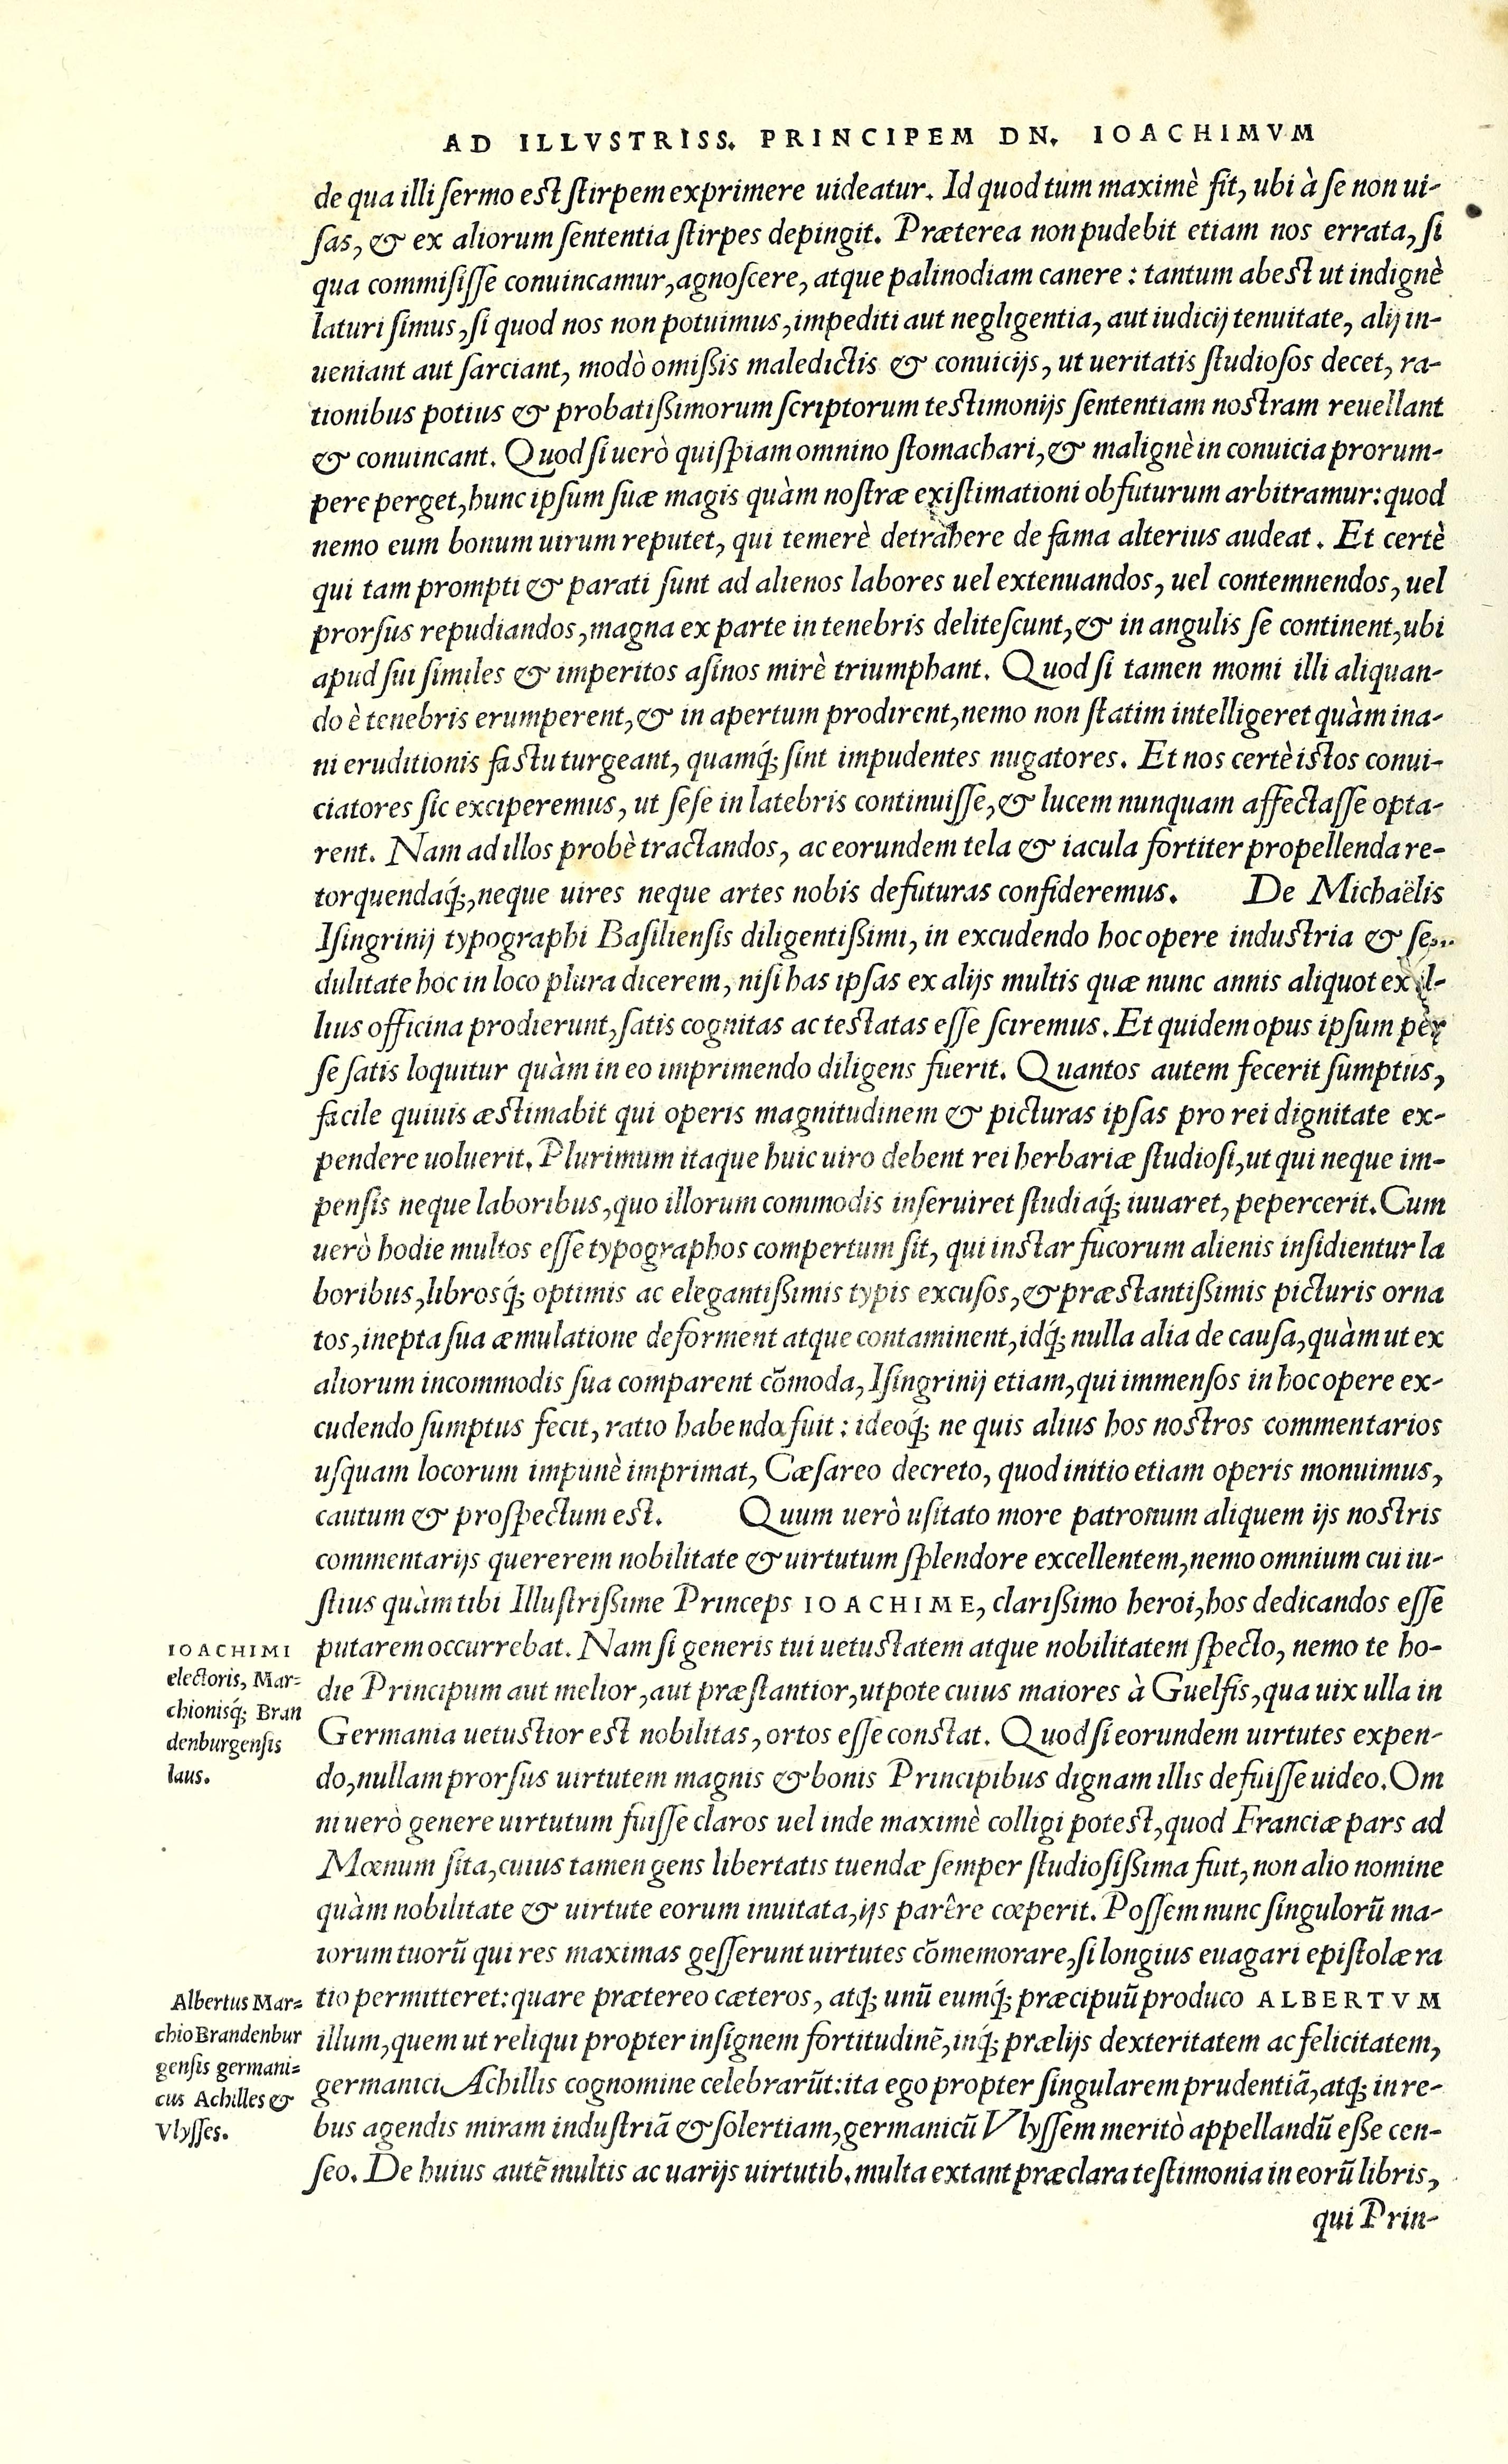 AD ILLVSTRISS. PRINCIPEM DN. IOACHIMVM
de qua illi sermo est stirpem exprimere uideatur. Id quod tum maximè fit, ubi à se non ui-
sas, & ex aliorum sententia stirpes depingit. Præterea non pudebit etiam nos errata, si
qua commisisse conuincamur, agnoscere, atque palinodiam canere: tantum abest ut indignè
laturi simus, si quod nos non potuimus, impediti aut negligentia, aut iudicij tenuitate, alij in-
ueniant aut sarciant, modò omißis maledictis & conuicijs, ut ueritatis studiosos decet, ra-
tionibus potius & probatißimorum scriptorum testimonijs sententiam nostram reuellant
& conuincant. Quod si uerò quispiam omnino stomachari, & malignè in conuicia prorum-
pere perget, hunc ipsum suæ magis quàm nostræ existimationi obfuturum arbitramur: quod
nemo eum bonum uirum reputet, qui temerè detrahere de fama alterius audeat. Et certè
qui tam prompti & parati sunt ad alienos labores uel extenuandos, uel contemnendos, uel
prorsus repudiandos, magna ex parte in tenebris delitescunt, & in angulis se continent, ubi
apud sui similes & imperitos asinos mirè triumphant. Quod si tamen momi illi aliquan-
do è tenebris erumperent, & in apertum prodirent, nemo non statim intelligeret quàm ina-
ni eruditionis fastu turgeant, quamq́; sint impudentes nugatores. Et nos certè istos conui-
ciatores sic exciperemus, ut sese in latebris continuisse, & lucem nunquam affectasse opta-
rent. Nam ad illos probè tractandos, ac eorundem tela & iacula fortiter propellenda re-
torquendaq́;, neque uires neque artes nobis defuturas confideremus. De Michaëlis
Isingrinij typographi Basiliensis diligentißimi, in excudendo hoc opere industria & se-
dulitate hoc in loco plura dicerem, nisi has ipsas ex alijs multis quæ nunc annis aliquot ex il-
lius officina prodierunt, satis cognitas ac testatas esse sciremus. Et quidem opus ipsum per
se satis loquitur quàm in eo imprimendo diligens fuerit. Quantos autem fecerit sumptus,
facile quiuis æstimabit qui operis magnitudinem & picturas ipsas pro rei dignitate ex-
pendere uoluerit. Plurimum itaque huic uiro debent rei herbariæ studiosi, ut qui neque im-
pensis neque laboribus, quo illorum commodis inseruiret studiaq́; iuuaret, pepercerit. Cum
uerò hodie multos esse typographos compertum sit, qui instar fucorum alienis insidientur la
boribus, librosq́; optimis ac elegantißimis typis excusos, & præstantißimis picturis orna
tos, inepta sua æmulatione deforment atque contaminent, idq́; nulla alia de causa, quàm ut ex
aliorum incommodis sua comparent cōmoda, Isingrinij etiam, qui immensos in hoc opere ex-
cudendo sumptus fecit, ratio habenda fuit: ideoq́; ne quis alius hos nostros commentarios
usquam locorum impunè imprimat, Cæsareo decreto, quod initio etiam operis monuimus,
cautum & prospectum est. Quum uerò usitato more patronum aliquem ijs nostris
commentarijs quererem nobilitate & uirtutum splendore excellentem, nemo omnium cui iu-
stius quàm tibi Illustrißime Princeps IOACHIME, clarißimo heroi, hos dedicandos esse
putarem occurrebat. Nam si generis tui uetustatem atque nobilitatem specto, nemo te ho-
die Principum aut melior, aut præstantior, utpote cuius maiores à Guelfis, qua uix ulla in
Germania uetustior est nobilitas, ortos esse constat. Quod si eorundem uirtutes expen-
do, nullam prorsus uirtutem magnis & bonis Principibus dignam illis defuisse uideo. Om
ni uerò genere uirtutum fuisse claros uel inde maximè colligi potest, quod Franciæ pars ad
Mœnum sita, cuius tamen gens libertatis tuendæ semper studiosißima fuit, non alio nomine
quàm nobilitate & uirtute eorum inuitata, ijs parêre cœperit. Possem nunc singulorū ma-
iorum tuorū qui res maximas gesserunt uirtutes cōmemorare, si longius euagari epistolæ ra
tio permitteret: quare prætereo cæteros, atq; unū eumq́; præcipuū produco ALBERTVM
illum, quem ut reliqui propter insignem fortitudinē, inq́; prælijs dexteritatem ac felicitatem,
germanici Achillis cognomine celebrarūt: ita ego propter singularem prudentiā, atq; in re-
bus agendis miram industriā & solertiam, germanicū Vlyssem meritò appellandū esse cen-
seo. De huius autē multis ac uarijs uirtutib. multa extant præclara testimonia in eorū libris,
qui Prin-
IOACHIMI
electoris, Mar-
chionisq́; Bran
denburgensis
laus.
Albertus Mar-
chio Brandenbur
gensis germani-
cus Achilles &
Vlysses.